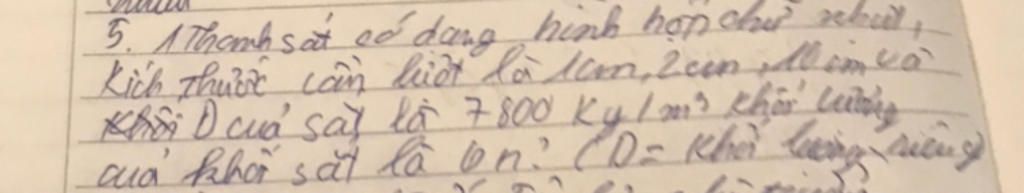 5. 1 Thanh sắt có dạng hình hộp chữ nhựt,
Kích thước lần lượt là 1cm, 2cm, 10cm và
D cuả sắt là 7800 Kg/m³ khối lượng
cuả khối sắt là bn? (D = khối lượng riêng)